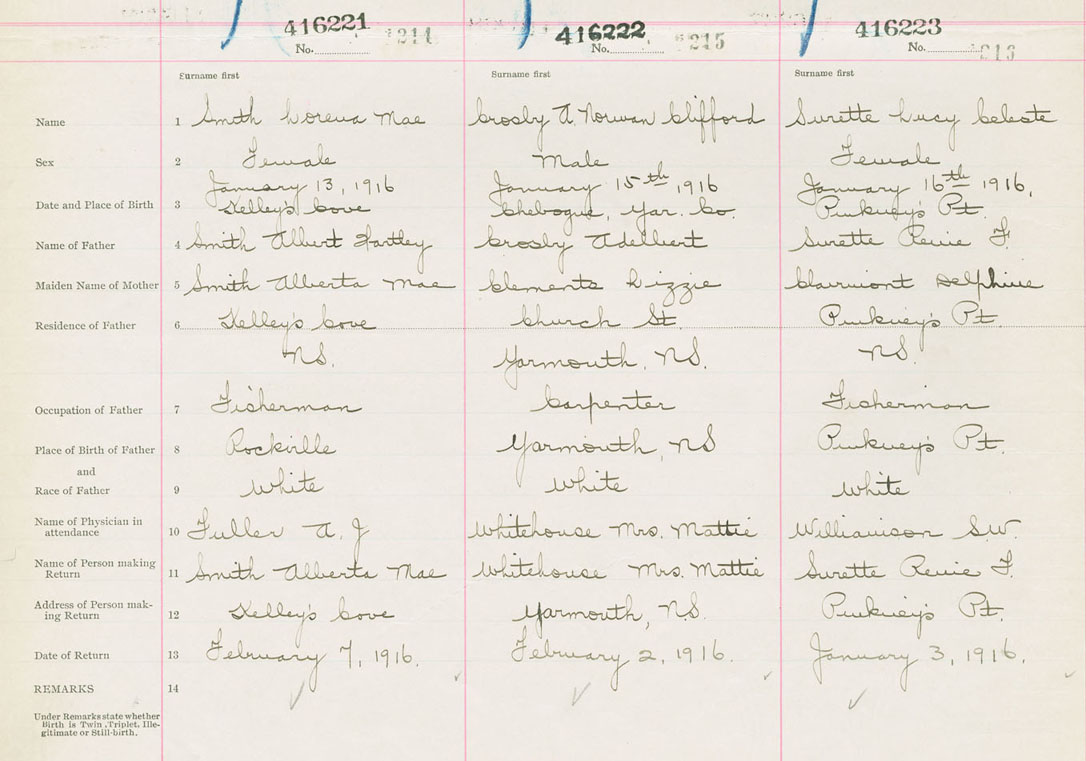 416221 416222 416223
No. 1214 No. 1215 No. 1216
Surname first Surname first Surname first
Name 1 Smith Lorena Mae Crosby A. Norman Clifford Surette Lucy Celeste
Sex 2 Female Male Female
January 13, 1916 January 15th, 1916 January 16th 1916,
Date and Place of Birth 3 Kelley's Cove Chebogue, Yar. Co. Pinkney's Pt.
Name of Father 4 Smith Albert Hartley Crosby Adelbert Surette Remie F.
Maiden Name of Mother 5 Smith Alberta Mae Clements Lizzie Clairmont Delphine
Residence of Father 6 Kelley's Cove Church St. Pinkney's Pt.
NS. Yarmouth, NS. NS.
Occupation of Father 7 Fisherman Carpenter Fisherman
Place of Birth of Father 8 Rockville Yarmouth, NS Pinkney's Pt.
and
Race of Father 9 White White White
Name of Physician in
attendance 10 Fuller A. J Whitehouse Mrs. Mattie Williamson S.W.
Name of Person making
Return 11 Smith Alberta Mae Whitehouse Mrs. Mattie Surette Remie F.
Address of Person mak-
ing Return 12 Kelley's Cove Yarmouth, N.S. Pinkney's Pt.
Date of Return 13 February 7, 1916. February 2, 1916. January 3, 1916.
REMARKS 14
Under Remarks state whether
Birth is Twin, Triplet, Ille-
gitimate or Still-birth.